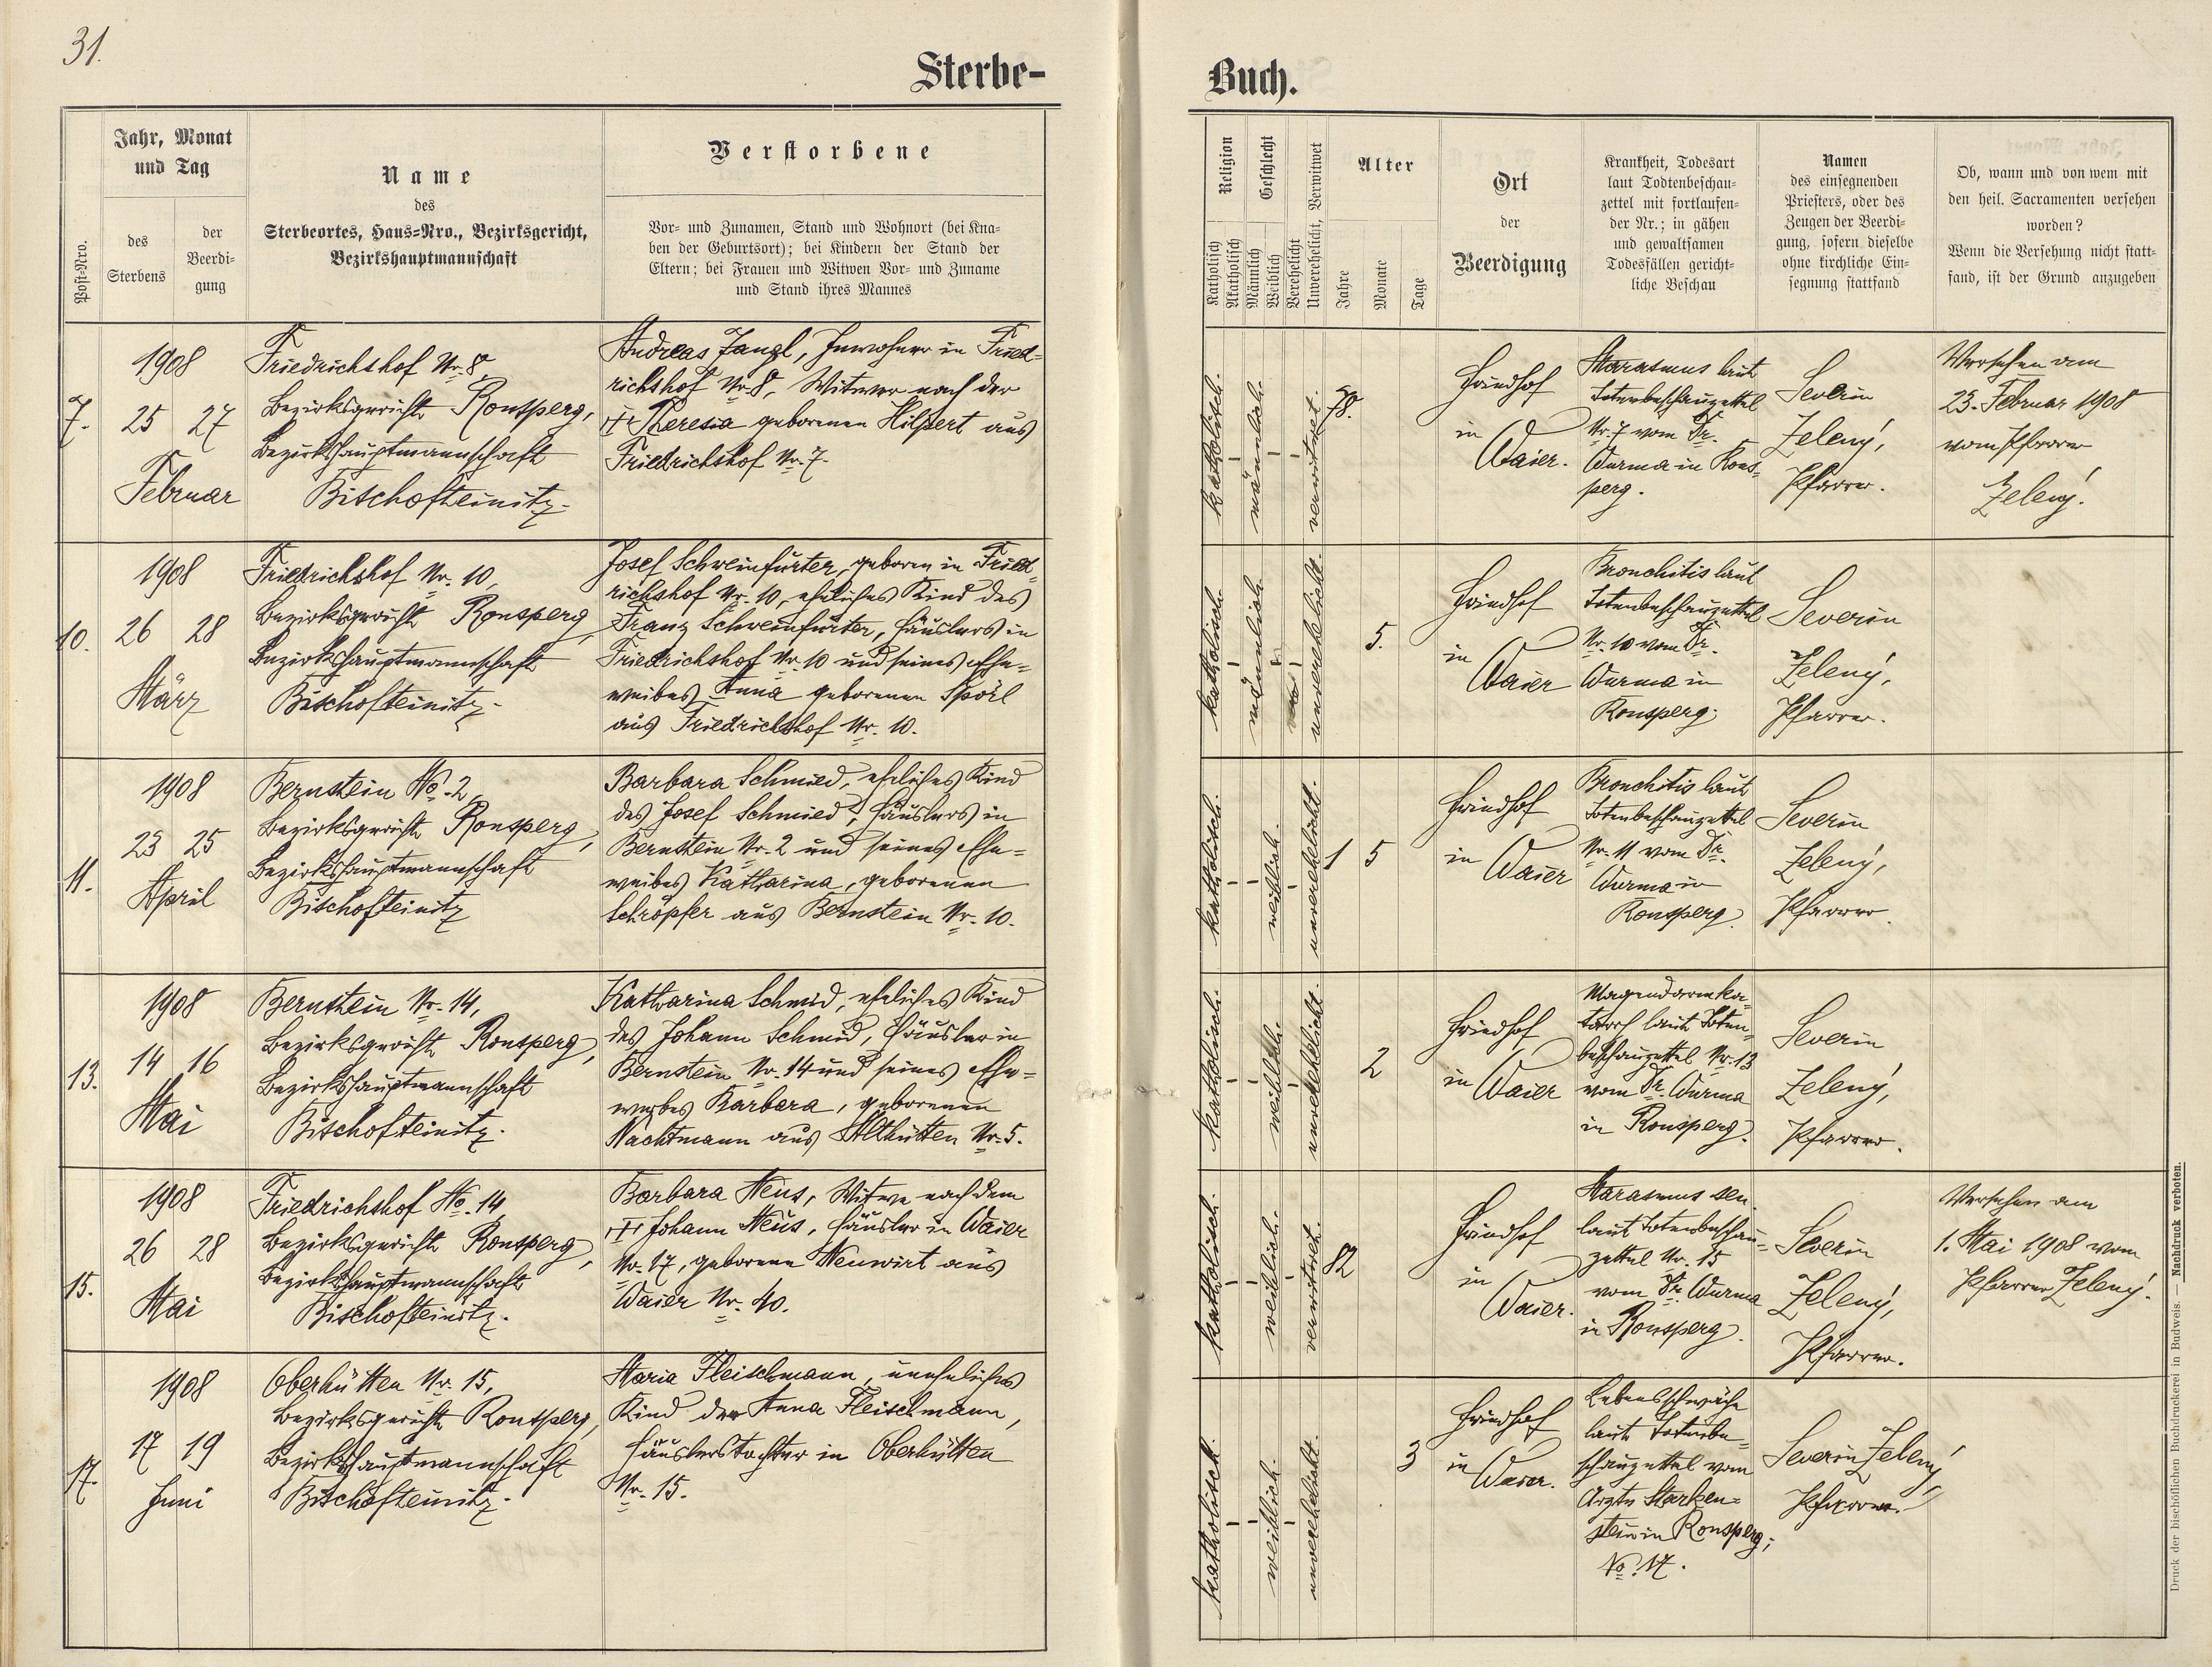 31.
Sterbe-
Buch.
Post-Nro.
Jahr, Monat
und Tag
des
Sterbens
der
Beerdi-
gung
Name
des
Sterbeortes, Haus-Nro., Bezirksgericht,
Bezirkshauptmannschaft
Verstorbene
Vor- und Zunamen, Stand und Wohnort (bei Kna-
ben der Geburtsort); bei Kindern der Stand der
Eltern; bei Frauen und Witwen Vor- und Zuname
und Stand ihres Mannes
Religion
Katholisch
Akatholisch
Geschlecht
Männlich
Weiblich
Verehelicht
Unverehelicht, Verwitwet
Alter
Jahre
Monate
Tage
Ort
der
Beerdigung
Krankheit, Todesart
laut Todtenbeschau-
zettel mit fortlaufen-
der Nr.; in gähen
und gewaltsamen
Todesfällen gericht-
liche Beschau
Namen
des einsegnenden
Priesters, oder des
Zeugen der Beerdi-
gung, sofern dieselbe
ohne kirchliche Ein-
segnung stattfand
Ob, wann und von wem mit
den heil. Sacramenten versehen
worden?
Wenn die Versehung nicht statt-
fand, ist der Grund anzugeben
7.
1908
25 27
Februar
Friedrichshof Nr. 8,
Bezirksgericht Ronsperg,
Bezirkshauptmannschaft
Bischofteinitz.
Andreas Zangl, Inwohner in Fried-
richshof Nr. 8, Witwer nach der
Theresia geborenen Hilpert aus
Friedrichshof Nr. 7.
katholisch.
männlich.
verwitwet.
78.
Friedhof
in
Waier.
Marasmus laut
Totenbeschauzettel
Nr. 7 vom Dr.
Wurma in Rons-
perg.
Severin
Zelený,
Pfarrer.
Versehen am
23. Februar 1908
vom Pfarrer
Zelený.
10.
1908
26 28
März
Friedrichshof Nr. 10,
Bezirksgericht Ronsperg,
Bezirkshauptmannschaft
Bischofteinitz.
Josef Schweinfurter, geboren in Fried-
richshof Nr. 10, eheliches Kind des
Franz Schweinfurter, Häuslers in
Friedrichshof Nr. 10 und seines Ehe-
weibes Anna geborenen Spörl
aus Friedrichshof Nr. 10.
katholisch
männlich
unverehelicht.
5.
Friedhof
in
Waier
Bronchitis laut
Totenbeschauzettel
Nr. 10 vom Dr.
Wurma in
Ronsperg.
Severin
Zelený,
Pfarrer.
11.
1908
23 25
April
Bernstein No. 2,
Bezirksgericht Ronsperg,
Bezirkshauptmannschaft
Bischofteinitz
Barbara Schmied, eheliches Kind
des Josef Schmied, Häuslers in
Bernstein Nr. 2 und seines Ehe-
weibes Katharina, geborenen
Schröpfer aus Bernstein Nr. 10.
katholisch.
weiblich.
unverehelicht.
1 5
Friedhof
in
Waier
Bronchitis laut
Totenbeschauzettel
Nr. 11 vom Dr.
Wurma in
Ronsperg.
Severin
Zelený,
Pfarrer.
13.
1908
14 16
Mai
Bernstein Nr. 14,
Bezirksgericht Ronsperg,
Bezirkshauptmannschaft
Bischofteinitz.
Katharina Schmid, eheliches Kind
des Johann Schmid, Häusler in
Bernstein Nr. 14 und seines Ehe-
weibes Barbara, geborenen
Nachtmann aus Althütten Nr. 5.
katholisch.
weiblich.
unverehelicht.
2
Friedhof
in Waier
Magendarmka-
tarrh laut Toten-
beschauzettel Nr. 13
vom Dr. Wurma
in Ronsperg.
Severin
Zelený,
Pfarrer.
15.
1908
26 28
Mai
Friedrichshof No. 14,
Bezirksgericht Ronsperg,
Bezirkshauptmannschaft
Bischofteinitz.
Barbara Heus, Witwe nach dem
Johann Heus, Häusler in Waier
Nr. 17, geborene Neuwirt aus
Waier Nr. 40.
katholisch.
weiblich.
verwitwet.
82
Friedhof
in
Waier.
Marasmus sen.
laut Totenbeschau-
zettel Nr. 15
vom Dr. Wurma
in Ronsperg.
Severin
Zelený,
Pfarrer.
Versehen am
1. Mai 1908 vom
Pfarrer Zelený.
17.
1908
17 19
Juni
Oberhütten Nr. 15,
Bezirksgericht Ronsperg,
Bezirkshauptmannschaft
Bischofteinitz.
Maria Fleischmann, uneheliches
Kind der Anna Fleischmann,
Häuslerstochter in Oberhütten
Nr. 15.
katholisch.
weiblich.
unverehelicht.
3
Friedhof
in Waier.
Lebensschwäche
laut Totenbe-
schauzettel vom
Arzte Starken-
stein in Ronsperg;
No. 17.
Severin Zelený,
Pfarrer.
Druck der bischöflichen Buchdruckerei in Budweis. — Nachdruck verboten.